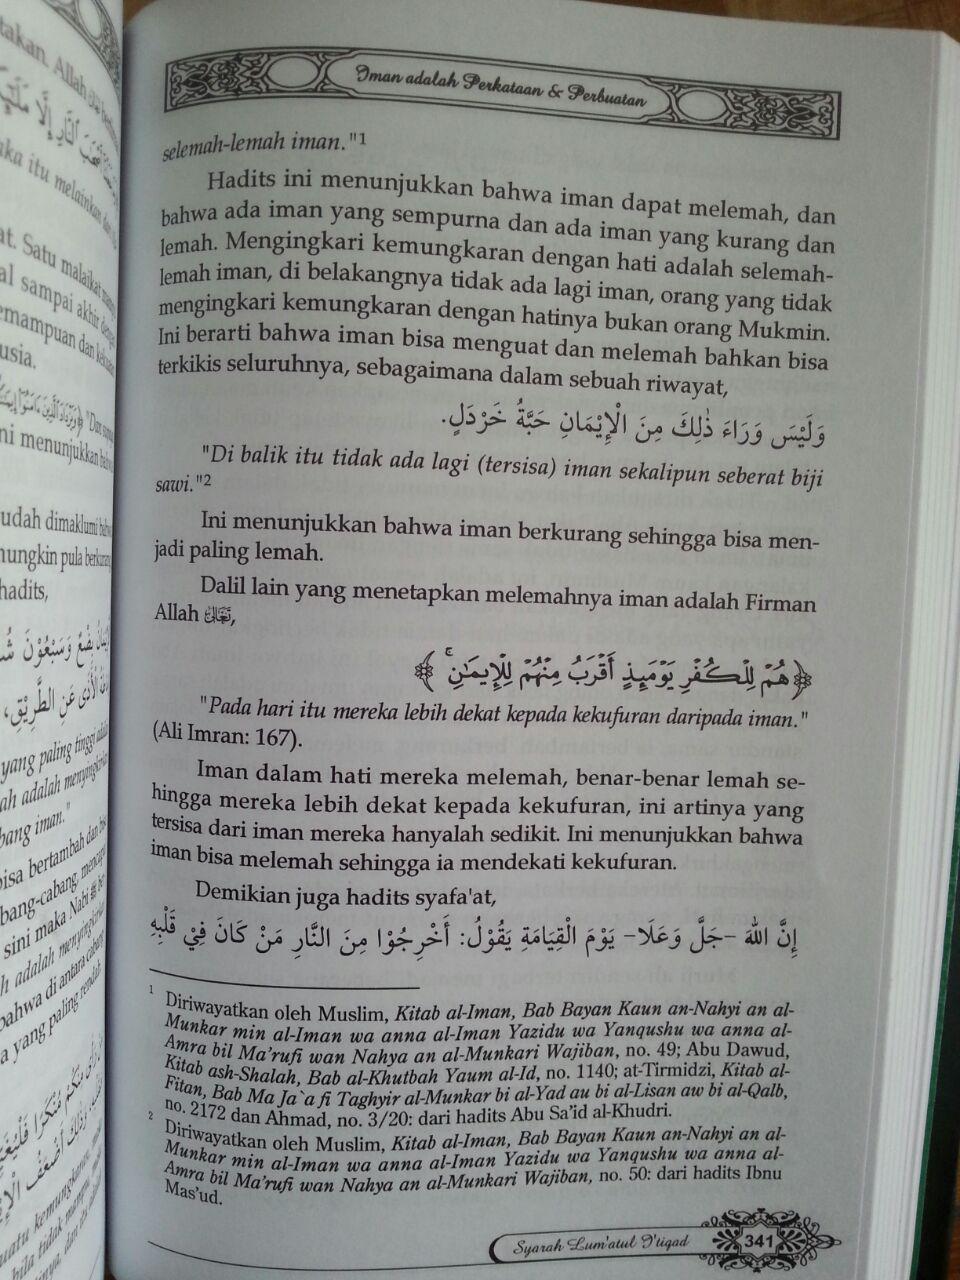 takan. Allah
ka itu melainkan
at. Satu malaikat
al sampai akhir
emampuan dan
usia.
ni menunjukkan
udah dimaklumi
nungkin pula berkurang
hadits,
بِضْعٌ وَسَبْعُوْنَ
الْأَذَى عَنِ الطَّرِيْقِ،
yang paling tinggi
ah adalah
bang iman."
isa bertambah dan
bang-cabang,
sini maka Nabi ﷺ
h adalah
bahwa di antara cabang
a yang paling rendah
Iman adalah Perkataan & Perbuatan
selemah-lemah iman."1
Hadits ini menunjukkan bahwa iman dapat melemah, dan
bahwa ada iman yang sempurna dan ada iman yang kurang dan
lemah. Mengingkari kemungkaran dengan hati adalah selemah-
lemah iman, di belakangnya tidak ada lagi iman, orang yang tidak
mengingkari kemungkaran dengan hatinya bukan orang Mukmin.
Ini berarti bahwa iman bisa menguat dan melemah bahkan bisa
terkikis seluruhnya, sebagaimana dalam sebuah riwayat,
وَلَيْسَ وَرَاءَ ذٰلِكَ مِنَ الْإِيْمَانِ حَبَّةُ خَرْدَلٍ.
"Di balik itu tidak ada lagi (tersisa) iman sekalipun seberat biji
sawi."2
Ini menunjukkan bahwa iman berkurang sehingga bisa men-
jadi paling lemah.
Dalil lain yang menetapkan melemahnya iman adalah Firman
Allah تَعَالَىٰ,
﴿هُمْ لِلْكُفْرِ يَوْمَئِذٍ أَقْرَبُ مِنْهُمْ لِلْإِيمَٰنِ ۚ﴾
"Pada hari itu mereka lebih dekat kepada kekufuran daripada iman."
(Ali Imran: 167).
Iman dalam hati mereka melemah, benar-benar lemah se-
hingga mereka lebih dekat kepada kekufuran, ini artinya yang
tersisa dari iman mereka hanyalah sedikit. Ini menunjukkan bahwa
iman bisa melemah sehingga ia mendekati kekufuran.
Demikian juga hadits syafa'at,
إِنَّ اللهَ -جَلَّ وَعَلَا- يَوْمَ الْقِيَامَةِ يَقُوْلُ: أَخْرِجُوْا مِنَ النَّارِ مَنْ كَانَ فِيْ قَلْبِهِ
1 Diriwayatkan oleh Muslim, Kitab al-Iman, Bab Bayan Kaun an-Nahyi an al-
Munkar min al-Iman wa anna al-Iman Yazidu wa Yanqushu wa anna al-
Amra bil Ma'rufi wan Nahya an al-Munkari Wajiban, no. 49; Abu Dawud,
Kitab ash-Shalah, Bab al-Khutbah Yaum al-Id, no. 1140; at-Tirmidzi, Kitab al-
Fitan, Bab Ma Ja`a fi Taghyir al-Munkar bi al-Yad au bi al-Lisan aw bi al-Qalb,
no. 2172 dan Ahmad, no. 3/20: dari hadits Abu Sa'id al-Khudri.
2 Diriwayatkan oleh Muslim, Kitab al-Iman, Bab Bayan Kaun an-Nahyi an al-
Munkar min al-Iman wa anna al-Iman Yazidu wa Yanqushu wa anna al-
Amra bil Ma'rufi wan Nahya an al-Munkari Wajiban, no. 50: dari hadits Ibnu
Mas'ud.
Syarah Lum'atul I'tiqad 341